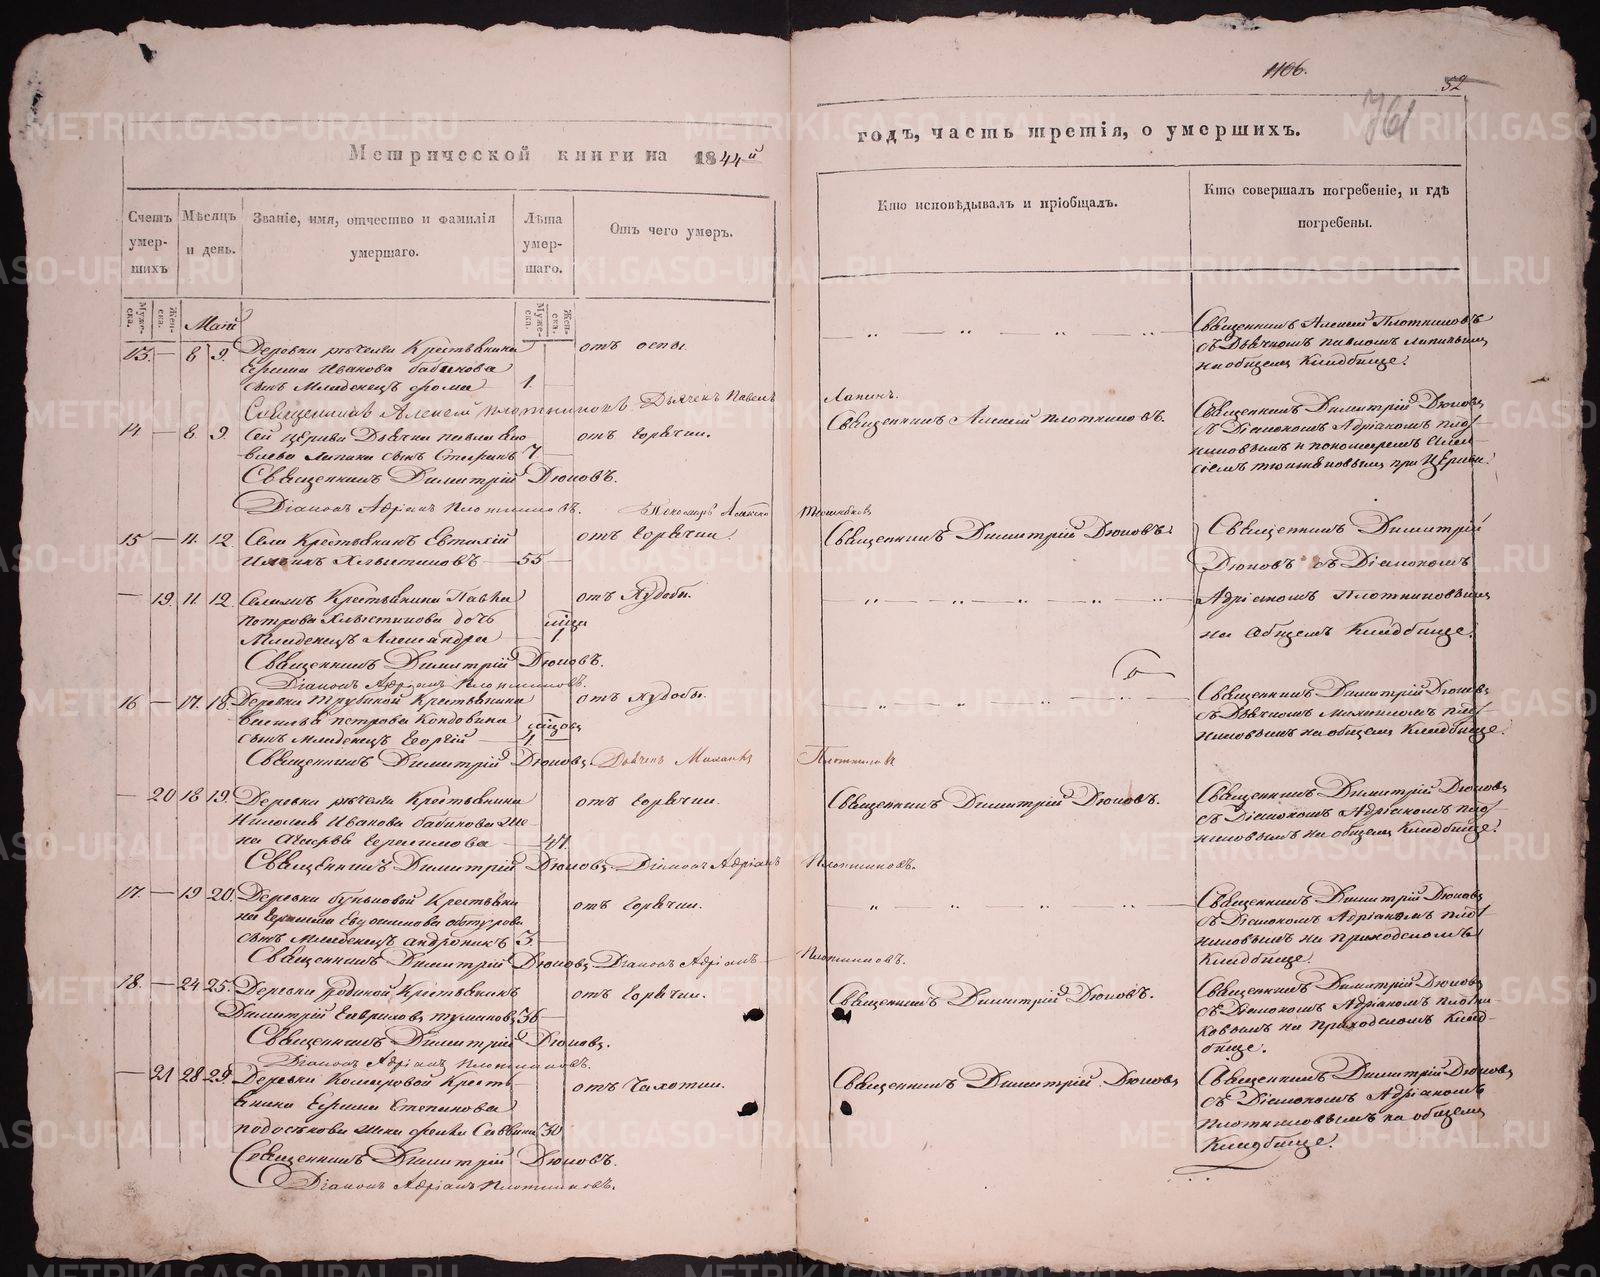 1106.
52
761
Метрической книги на 1844й
годъ, часть третія, о умершихъ.
Счетъ умер-шихъ
Мѣсяцъ и день.
Званіе, имя, отчество и фамилія умершаго.
Лѣта умер-шаго.
Отъ чего умеръ.
Кто исповѣдывалъ и пріобщалъ.
Кто совершалъ погребеніе, и гдѣ погребены.
Муже-ска.
Жен-ска.
Муже-ска.
Жен-ска.
Маій
13. — 8 9. Деревни Крестьянина
Ивакова бабинова
сынъ Младенецъ Фома 1.
отъ оспы.
Священникъ Алексій Плотниковъ
съ Дьячкомъ Павломъ Лапинымъ
на общемъ Кладбище.
Священникъ Алексій Плотниковъ. Дьячекъ Павелъ Лапинъ.
14 — 8. 9. Сей Церкви Дьячка Павла
Лапина сынъ 7
отъ Горячки.
Священникъ Алексій Плотниковъ.
Священникъ Димитрій Дюковъ
съ Діакономъ Адріаномъ Плот-
никовымъ и пономаремъ
при Церкви.
Священникъ Димитрій Дюковъ.
Діаконъ Адріанъ Плотниковъ. Пономарь
15 — 11. 12. Села Крестьянинъ Евтихій
Хлыстиковъ 55
отъ Горячки.
Священникъ Димитрій Дюковъ.
Священникъ Димитрій
Дюковъ съ Діакономъ
— 19. 11. 12. Крестьянина Павла
Петрова Хлыстикова дочь
Младенецъ Александра 1
отъ Худобы.
Адріаномъ Плотниковымъ
на Общемъ Кладбище.
Священникъ Димитрій Дюковъ.
Діаконъ Адріанъ Плотниковъ.
16 — 17. 18. Деревни Трубиной Крестьянина
Василья Петрова Кондовина
сынъ Младенецъ Георгій 4
отъ худобы.
Священникъ Димитрій Дюковъ
съ Дьячкомъ Михаиломъ Плот-
никовымъ на общемъ Кладбище.
Священникъ Димитрій Дюковъ. Дьячекъ Михаилъ Плотниковъ
— 20 18 19. Деревни Крестьянина
Николая Иванова бабинова же-
на Герасимова 41.
отъ Горячки.
Священникъ Димитрій Дюковъ.
Священникъ Димитрій Дюковъ
съ Діакономъ Адріаномъ Плот-
никовымъ на общемъ Кладбище.
Священникъ Димитрій Дюковъ. Діаконъ Адріанъ Плотниковъ.
17. — 19 20. Деревни Крестьяни-
на
сынъ Младенецъ Андроникъ 3.
отъ Горячки.
Священникъ Димитрій Дюковъ
съ Діакономъ Адріаномъ Плот-
никовымъ на Приходскомъ
Кладбище.
Священникъ Димитрій Дюковъ. Діаконъ Адріанъ Плотниковъ.
18. — 24 25. Деревни Крестьянинъ
Димитрій Гавриловъ Тумановъ 36
отъ Горячки.
Священникъ Димитрій Дюковъ.
Священникъ Димитрій Дюковъ
съ Діакономъ Адріаномъ Плотни-
ковымъ на Приходскомъ Клад-
бище.
Священникъ Димитрій Дюковъ.
Діаконъ Адріанъ Плотниковъ.
— 21 28 29. Деревни Комаровой Кресть-
янина Степанова
жена 30
отъ Чахотки.
Священникъ Димитрій Дюковъ
Священникъ Димитрій Дюковъ
съ Діакономъ Адріаномъ
Плотниковымъ на общемъ
Кладбище.
Священникъ Димитрій Дюковъ.
Діаконъ Адріанъ Плотниковъ.
METRIKI.GASO-URAL.RU